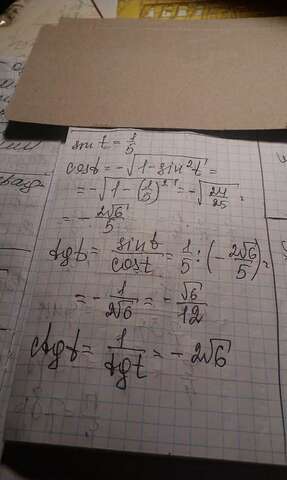 sin t = 1/5
cos t = -√(1 - sin²t) =
= -√(1 - (1/5)²) = -√(24/25) =
= - 2√6/5
tg t = sin t/cos t = 1/5 : (- 2√6/5) =
= - 1/(2√6) = - √6/12
ctg t = 1/tg t = - 2√6